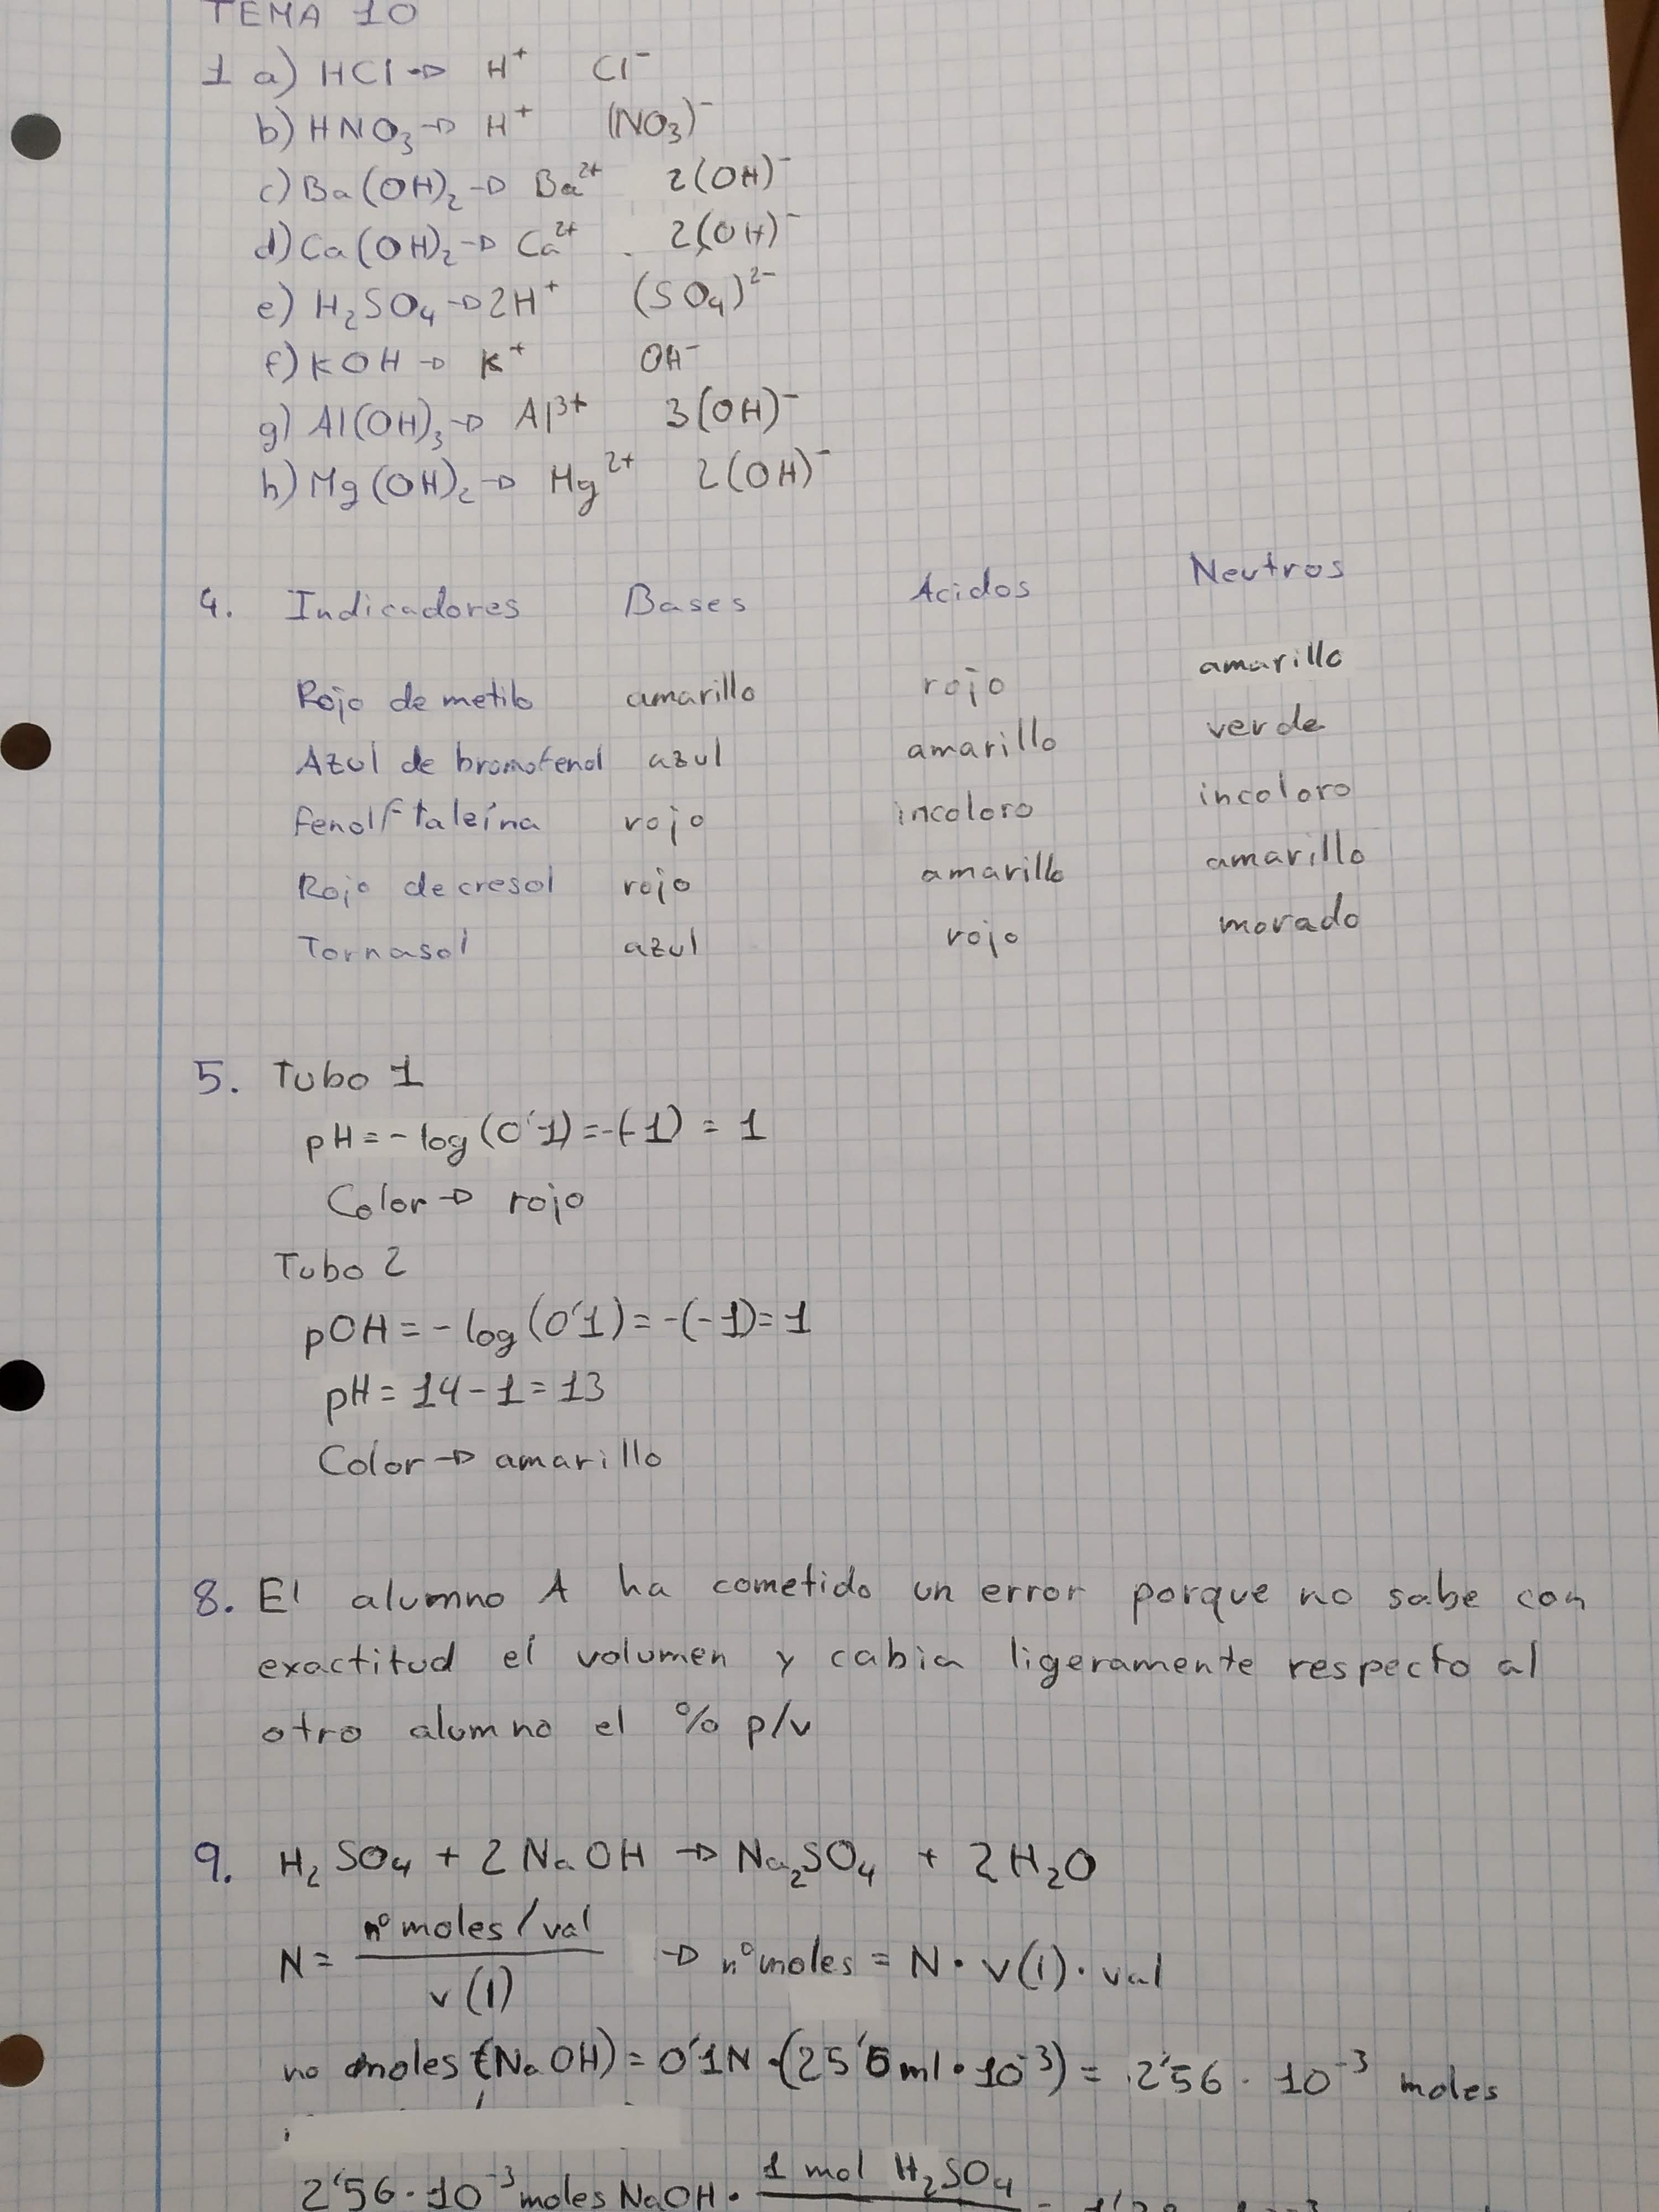 TEMA 10
1 a) HCl → H⁺ Cl⁻
b) HNO₃ → H⁺ (NO₃)⁻
c) Ba(OH)₂ → Ba²⁺ 2(OH)⁻
d) Ca(OH)₂ → Ca²⁺ 2(OH)⁻
e) H₂SO₄ → 2H⁺ (SO₄)²⁻
f) KOH → K⁺ OH⁻
g) Al(OH)₃ → Al³⁺ 3(OH)⁻
h) Mg(OH)₂ → Mg²⁺ 2(OH)⁻
4. Indicadores Bases Acidos Neutros
Rojo de metilo amarillo rojo amarillo
Azul de bromofenol azul amarillo verde
Fenolftaleína rojo incoloro incoloro
Rojo de cresol rojo amarillo amarillo
Tornasol azul rojo morado
5. Tubo 1
pH = - log (0'1) = -(-1) = 1
Color → rojo
Tubo 2
pOH = - log (0'1) = -(-1) = 1
pH = 14 - 1 = 13
Color → amarillo
8. El alumno A ha cometido un error porque no sabe con
exactitud el volumen y cabia ligeramente respecto al
otro alumno el % p/v
9. H₂SO₄ + 2NaOH → Na₂SO₄ + 2H₂O
N = nº moles / val / v(l) → nº moles = N · v(l) · val
no moles (NaOH) = 0'1N · (25'6 ml · 10⁻³) = 2'56 · 10⁻³ moles
2'56 · 10⁻³ moles NaOH · 1 mol H₂SO₄